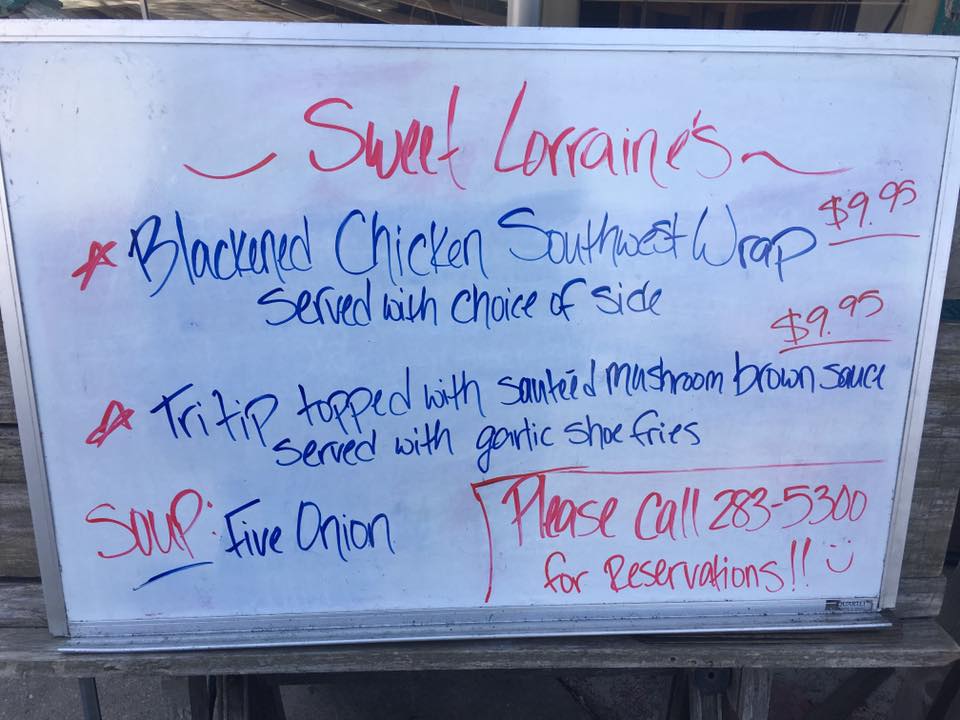 Sweet Lorraine's
Blackened Chicken Southwest Wrap $9.95
served with choice of side
$9.95
Tri tip topped with sauteéd mushroom brown sauce
served with garlic shoe fries
Soup: Five Onion
Please Call 283-5300
for Reservations!!
QUARTET